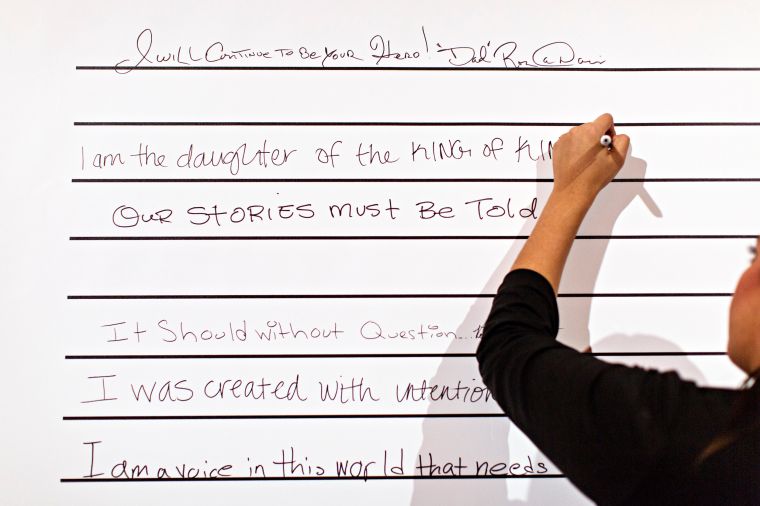 I WILL CONTINUE TO BE YOUR HERO! "Dad"
I am the daughter of the KING of
OUR STORIES MUST BE Told
It Should without Question...
I was created with intention
I am a voice in this world that needs